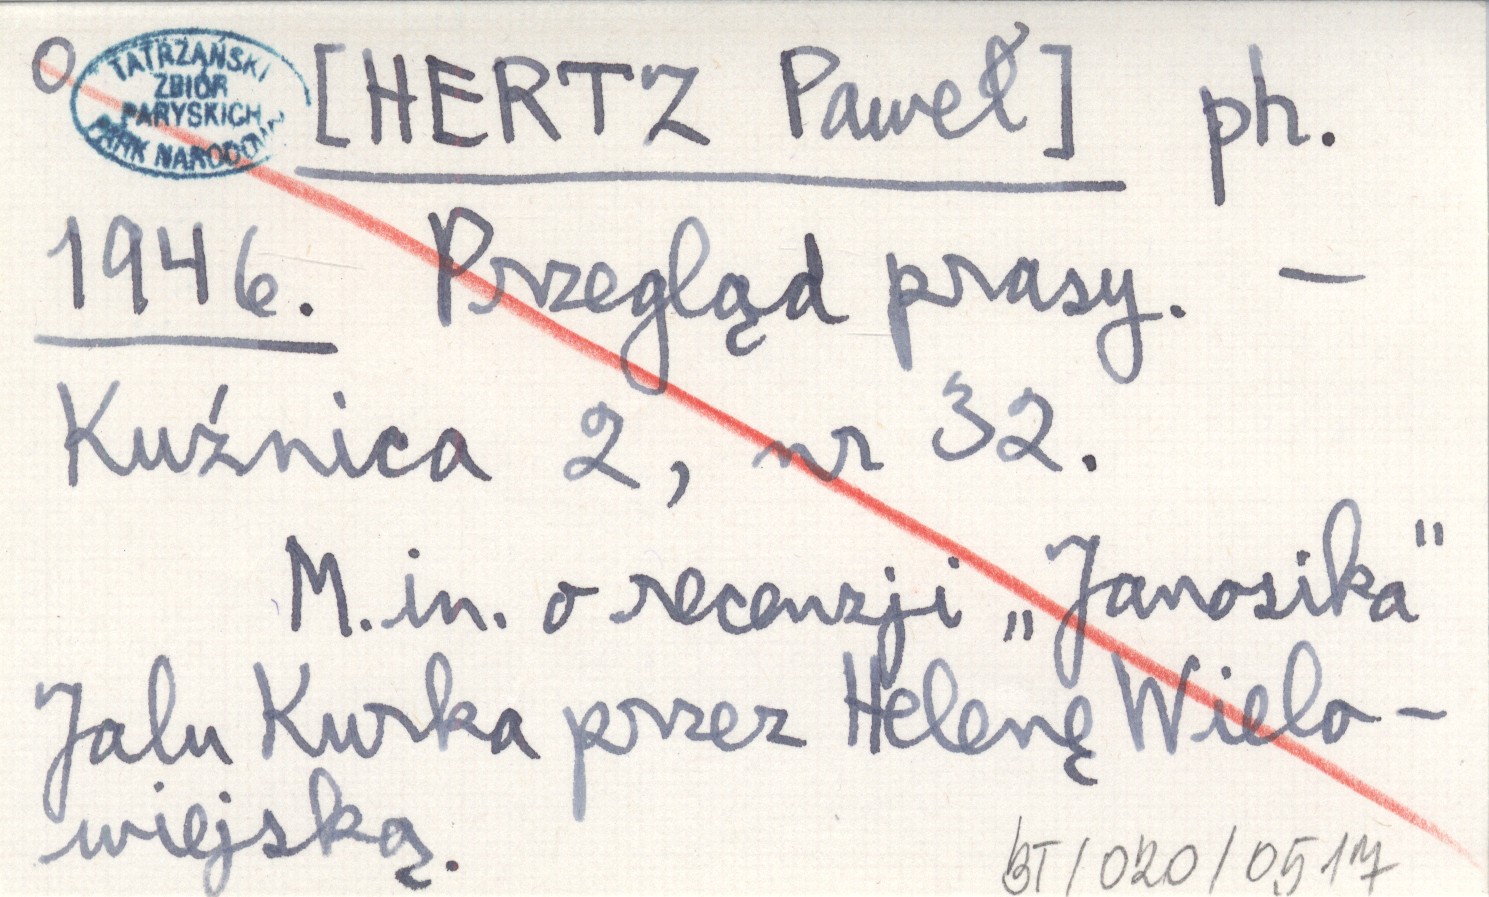 O
TATRZAŃSKI
ZBIÓR
PARYSKICH
PARK NARODOWY
[HERTZ Paweł] ph.
1946. Przegląd prasy. –
Kuźnica 2, nr 32.
M. in. o recenzji „Janosika"
Jalu Kurka przez Helenę Wielo-
wiejską.
BT/020/0517